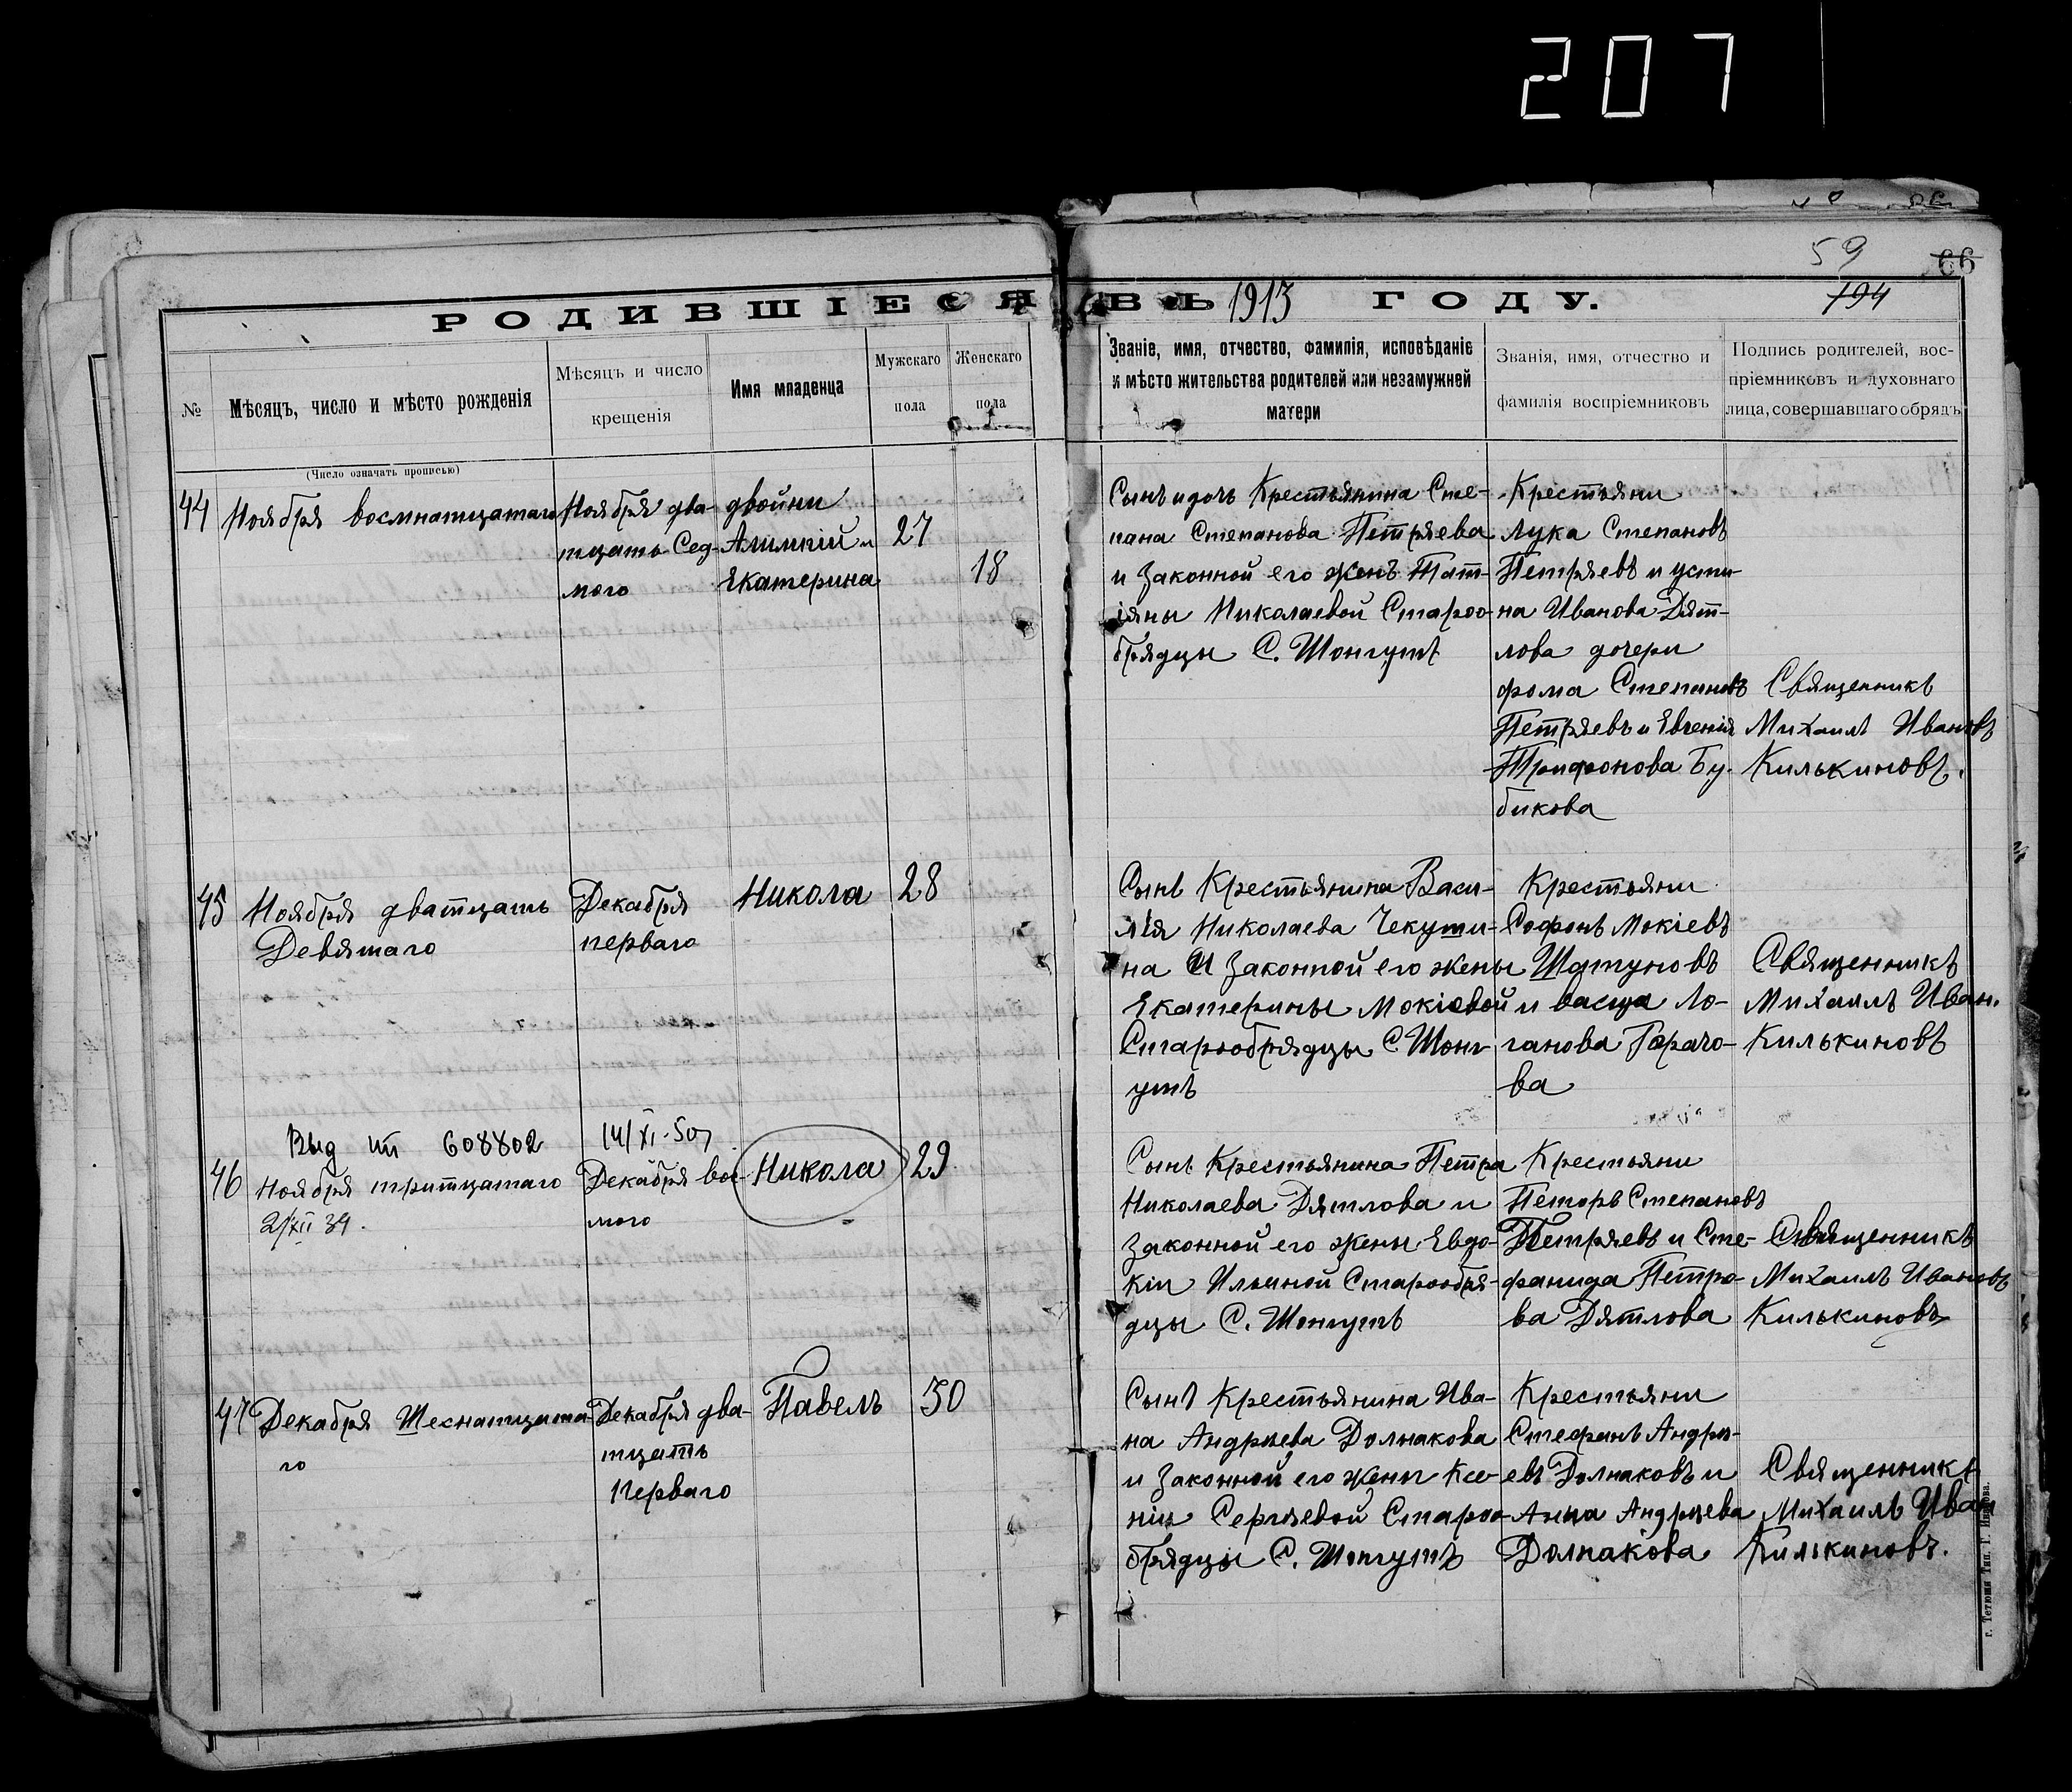 207
59
66
РОДИВШІЕСЯ ВЪ 1913 ГОДУ.
194
№
Мѣсяцъ, число и мѣсто рожденія
(Число означать прописью)
Мѣсяцъ и число
крещенія
Имя младенца
Мужскаго
пола
Женскаго
пола
Званіе, имя, отчество, фамилія, исповѣданіе
и мѣсто жительства родителей или незамужней
матери
Званія, имя, отчество и
фамилія воспріемниковъ
Подпись родителей, вос-
пріемниковъ и духовнаго
лица, совершавшаго обрядъ
44
Ноября восмнатцатаго
Ноября два-
тцать Сед-
мого
двойни
Алимпій и
Екатерина
27
18
Сынъ и дочь Крестьянина Сте-
пана Степанова Петряева
и Законной его женѣ Тат-
іяны Николаевой Староо-
брядцы С. Шонгутѣ
Крестьяни
Лука Степановъ
Петряевъ и усти-
на Иванова Дят-
лова дочери
фома Степановъ
Петряевъ и Евгенія
Трифонова Бу-
бикова
Священникъ
Михаилъ Ивановъ
Килькиновъ.
45
Ноября дватцать
Девятаго
Декабря
перваго
Никола
28
Сынъ Крестьянина Васи-
лія Николаева Чекути-
на И Законной его жены
Екатерины Мокіевой
Старообрядцы С Шонг
утѣ
Крестьяни
Софонъ Мокіевъ
Шатуновъ
и васща Ло-
ганова Горачо-
ва
Священникъ
Михаилъ Иван.
Килькиновъ
Выд 608802
14/XI-50
46
Ноября тритцатаго
2/XII 39.
Декабря вос-
мого
Никола
29
Сынъ Крестьянина Петра
Николаева Дятлова и
Законной его жены Евдо-
кіи Ильиной Старообря-
дцы С. Шонгутѣ
Крестьяни
Петоръ Степановъ
Петряевъ и Сте-
фанида Петро-
ва Дятлова
Священникъ
Михаилъ Ивановъ
Килькиновъ
47
Декабря Шеснатцата-
го
Декабря два-
тцать
Перваго
Павелъ
30
Сынъ Крестьянина Ива-
на Андрѣева Долнакова
и Законной его жены Ксе-
ніи Сергѣевой Староо-
брядцы С. Шонгутѣ
Крестьяни
Стефанъ Андрѣ-
евъ Долнаковъ и
Анна Андрѣева
Долнакова
Священникъ
Михаилъ Иван
Килькиновъ.